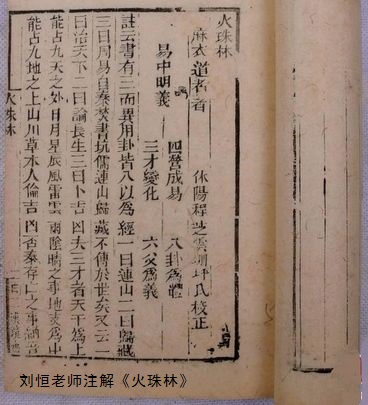 火珠林
麻衣道者著 休陽程芝雲坪氏校正
易中明義
四營成易 八卦為體
三才變化 六爻為義
註云書有三而異用卦皆八以為經一曰連山二曰歸藏
三曰周易自秦焚書坑儒連山歸藏不傳於世矣又云一
曰治天下二曰論長生三曰卜吉凶夫三才者天為上
能占九天之外日月星辰風雷雲雨陰晴之事地支為中
能占九地之上山川草木人倫吉凶否泰存亡之事
火珠林
刘恒老师注解《火珠林》